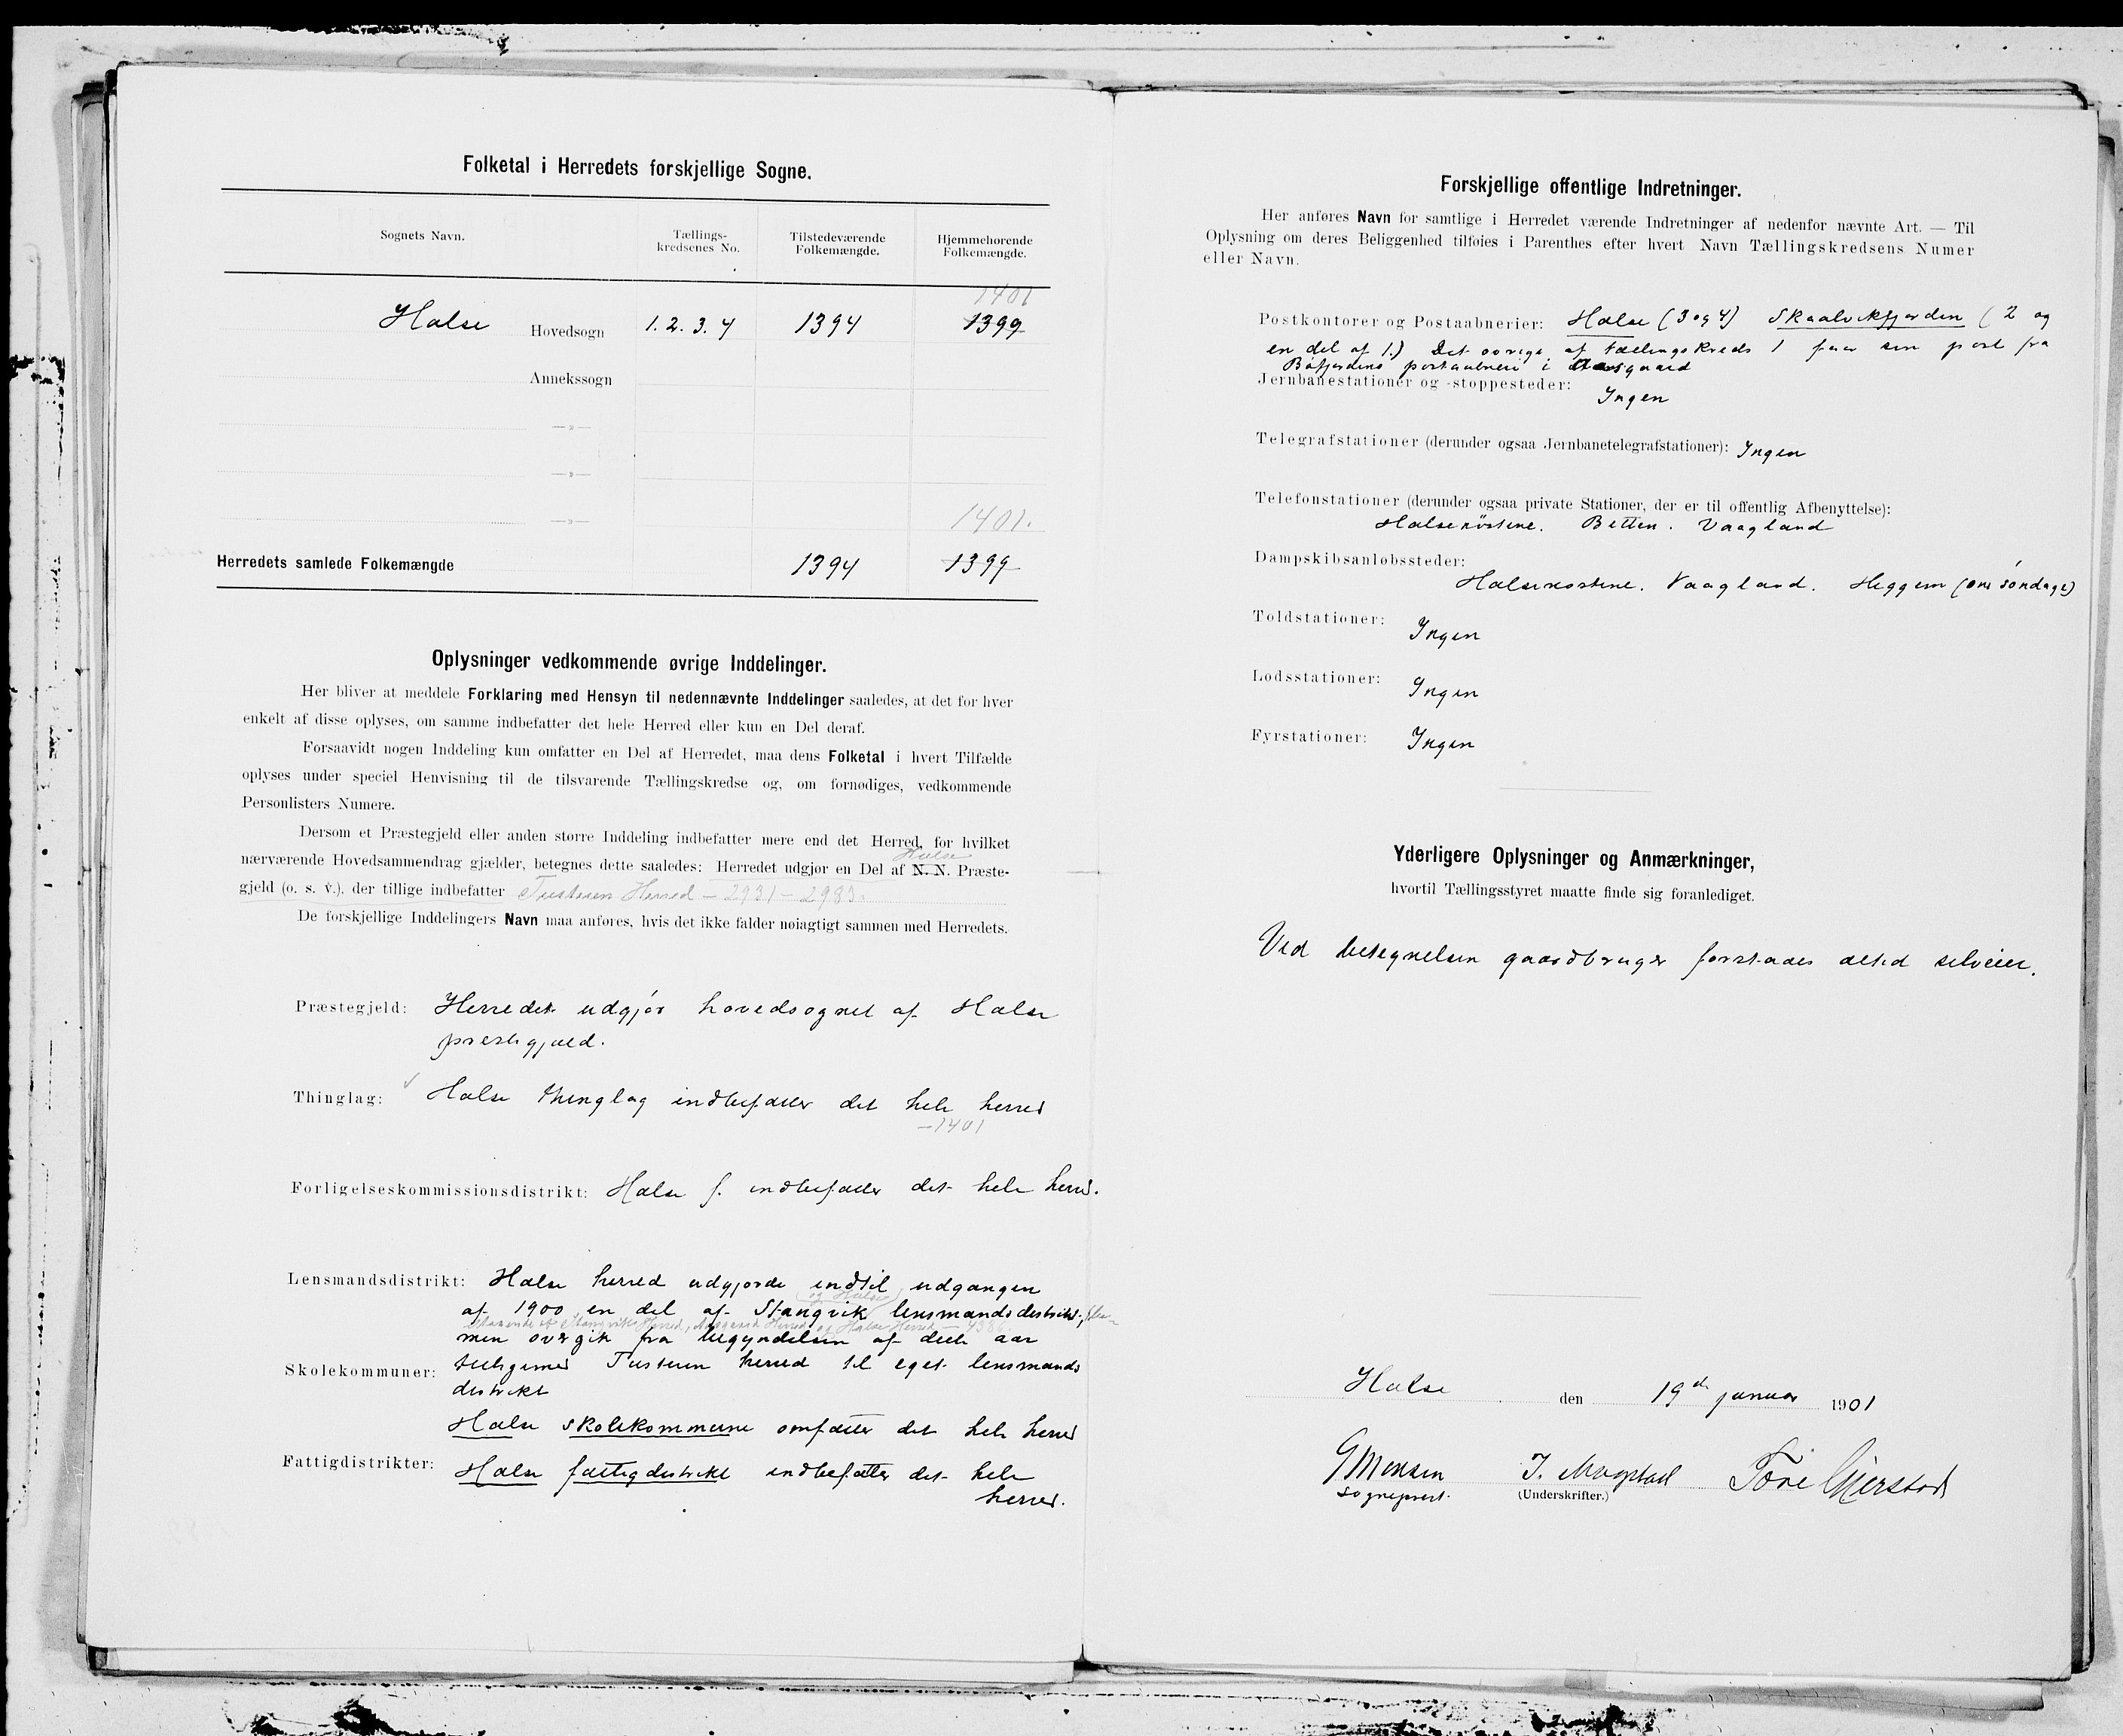 Folketal i Herredets forskjellige Sogne.
Sognets Navn. Tællings-kredsenes No. Tilstedeværende Folkemængde. Hjemmehørende Folkemængde.
1401
Halse Hovedsogn 1. 2. 3. 4 1394 1399
Annekssogn
—»—
—»—
1401.
—»—
Herredets samlede Folkemængde 1394 1399
Oplysninger vedkommende øvrige Inddelinger.
Her bliver at meddele Forklaring med Hensyn til nedennævnte Inddelinger saaledes, at det for hver
enkelt af disse oplyses, om samme indbefatter det hele Herred eller kun en Del deraf.
Forsaavidt nogen Inddeling kun omfatter en Del af Herredet, maa dens Folketal i hvert Tilfælde
oplyses under speciel Henvisning til de tilsvarende Tællingskredse og, om fornødiges, vedkommende
Personlisters Numere.
Dersom et Præstegjeld eller anden større Inddeling indbefatter mere end det Herred, for hvilket
Halse
nærværende Hovedsammendrag gjælder, betegnes dette saaledes: Herredet udgjør en Del af N. N. Præste-
gjeld (o. s. v.), der tillige indbefatter Tusteren Herred – 2931 – 2983.
De forskjellige Inddelingers Navn maa anføres, hvis det ikke falder nøiagtigt sammen med Herredets.
Præstegjeld: Herredet udgjór hovedsognet af Halse
prestegjeld.
Thinglag: Halse thinglag indbefatter det hele herred
– 1401
Forligelseskommissionsdistrikt: Halse f. indbefatter det hele herred.
Lensmandsdistrikt: Halse herred udgjorde indtil udgangen
og Halse
af 1900 en del af Stangvik lensmandsdistrikt,
Stangvik Herred, Aasgaard Herred og Halse Herred – 4386
men overgik fra begyndelsen af dette aar
Skolekommuner: tilligemed Tusteren herred til eget lensmands
distrikt
Halse skolekommune omfatter det hele herred
Fattigdistrikter: Halse fattigdistrikt indbefatter det hele
herred.
Forskjellige offentlige Indretninger.
Her anføres Navn for samtlige i Herredet værende Indretninger af nedenfor nævnte Art. — Til
Oplysning om deres Beliggenhed tilføies i Parenthes efter hvert Navn Tællingskredsens Numer
eller Navn.
Postkontorer og Postaabnerier: Halse (3 og 4) Skaalvikfjorden (2 og
en del af 1.) Det øvrige af tællingskreds 1 faar sin post fra
Bófjordens postaabneri i Aasgaard
Jernbanestationer og -stoppesteder: Ingen
Telegrafstationer (derunder ogsaa Jernbanetelegrafstationer): Ingen
Telefonstationer (derunder ogsaa private Stationer, der er til offentlig Afbenyttelse):
Halsenóstene. Betten. Vaagland
Dampskibsanløbssteder:
Halsenostene. Vaagland. Heggem (om sóndage)
Toldstationer: Ingen
Lodsstationer: Ingen
Fyrstationer: Ingen
Yderligere Oplysninger og Anmærkninger,
hvortil Tællingsstyret maatte finde sig foranlediget.
Ved betegnelsen gaardbruger forstaaes altid selveier.
Halse den 19de januar 1901
G Monsen J. Magstad Tore Gjerstad
sogneprest. (Underskrifter.)